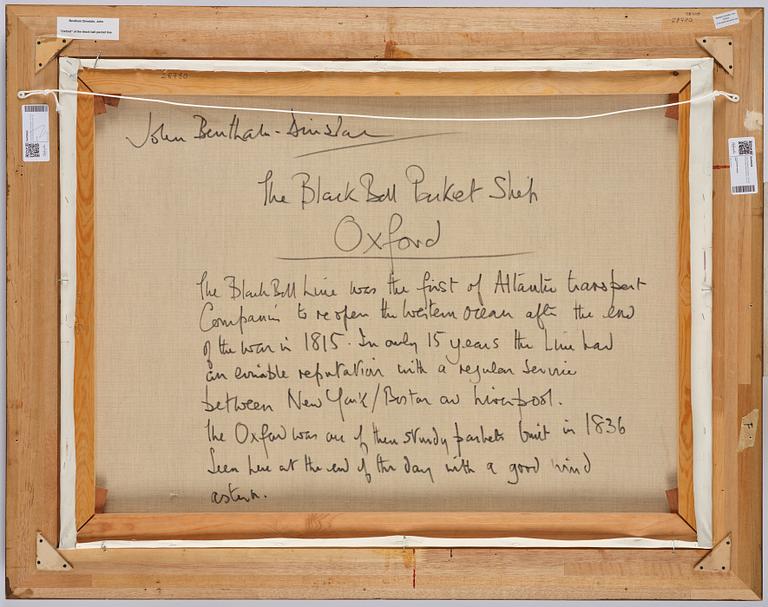 Bentham Dinsdale, John
"Oxford" of the black ball packet line
28730
28730
John Bentham-Dinsdale
The Black Ball Packet Ship
Oxford
The Black Ball Line was the first of Atlantic transport
Companies to reopen the Western Ocean after the end
of the war in 1815. In only 15 years the Line had
an enviable reputation with a regular service
between New York/Boston and Liverpool.
The Oxford was one of these sturdy packets built in 1836
Seen here at the end of the day with a good wind
astern.